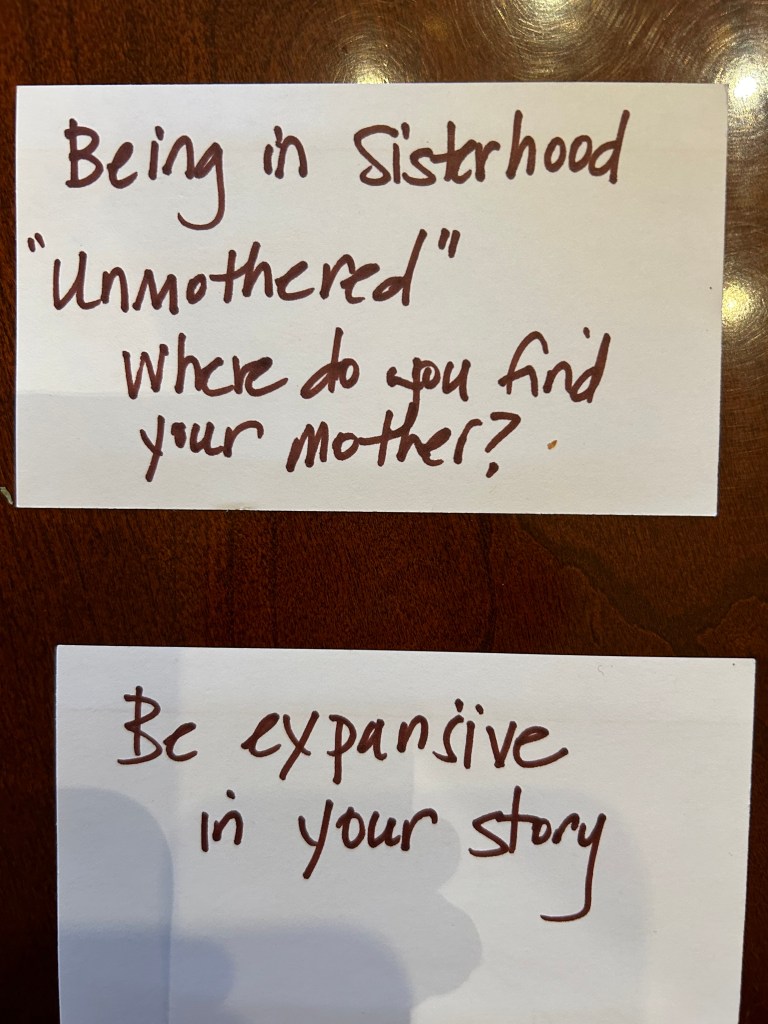 Being in Sisterhood
"Unmothered"
Where do you find
your mother?
Be expansive
in your story